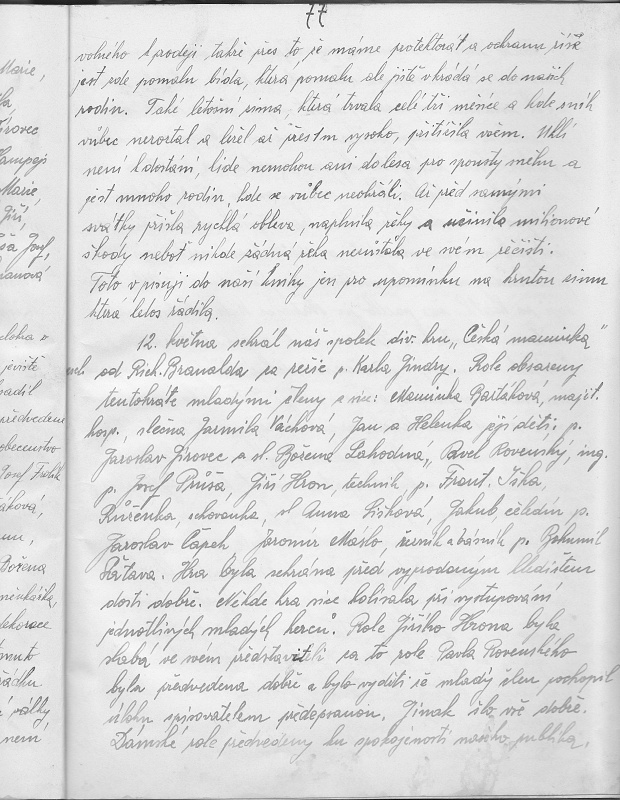 77
volného k prodeji takže přes to že máme protektorát a ochranu říše
jest zde pomalu bída, která pomalu ale jistě vkrádá se do našich
rodin. Také letošní zima, která trvala celé tři měsíce a kde sníh
vůbec neroztál a ležel až přes 1 m vysoko, přitížila všem. Uhlí
není k dostání, lide nemohou ani do lesa pro spousty sněhu a
jest mnoho rodin, kde se vůbec neohřáli. Až před samými
svátky přišla rychlá obleva, naplnila řeky a učinila milionové
škody neboť nikde žádná řeka nezůstala ve svém řečišti.
Toto v pisuji do naší knihy jen pro upomínku na krutou zimu
která letos řádila.
12. května sehrál náš spolek div. hru „Česká maminka"
od Rich. Branalda za režie p. Karla Jindry. Role obsazeny
tentokráte mladými členy a sice: Maminka Bartáková, majit.
hosp., slečna Jarmila Váchová, Jan a Helenka její děti: p.
Jaroslav Jirovec a sl. Božena Lahodna, Pavel Rovenský, ing.
p. Josef Průša, Jiří Hron, technik, p. Frant. Iška,
Růženka, schovanka, sl Anna Lišková, Jakub, čeledín p.
Jaroslav Čápek Jaromir Máslo, řezník a básník p. Bohumil
Poltava. Hra byla sehrána před vyprodaným hledištem
dosti dobře. Někde hra sice kolisala při vystupování
jednotlivých mladých herců. Role Jiřího Hrona byla
slabá ve svém představiteli za to role Pavla Rovenského
byla předvedena dobře a bylo vyditi že mladý člen pochopil
úlohu spisovatelem předepsanou. Jinak šlo vše dobře.
Dámské role předvedeny ku spokojenosti našeho publika.
Marie,
Jirovec
Hampejs
Marie
Jiří,
Josef,
jeviště
předvedena
obecenstvo
Josef
Božena
dekorace
války,
není